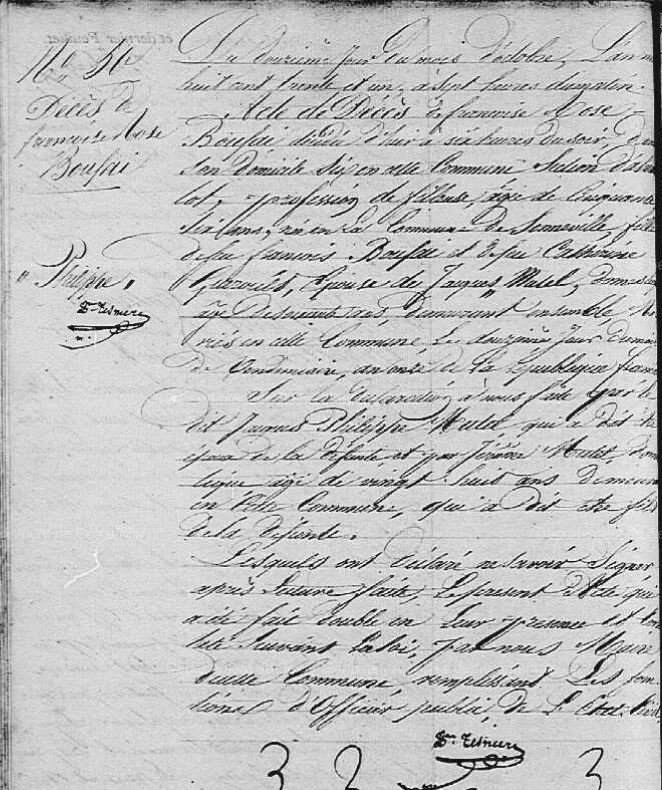 No 56
Décès de
francoise Rose
Boufai
" Philippe "
Dn. Tesniere
Du douzieme jour du mois d'octobre, L'an m
huit cent trente et un, à sept heures du matin.
Acte de Décès de francoise Rose
Boufai décédée d'hier à six heures du soir, dans
son Domicile sis en cette Commune Section
lot, profession de fileuse, agée de Cinquante
six ans, née en la Commune de Senneville, fille
de feu francois Boufai et de feu Catherine
Epouse de Jacques " Mulot,
agé de soixante demeurant ensemble
riés en cette Commune, Le douzième Jour du mois
de Vendemiaire, an onze de La republique franc
Sur la declaration à nous faite par le
dit Jacques Philippe Mulot qui a dit être
epoux de la defunte et par Mulot, dom
estique agé de vingt huit ans demeur
en cette Commune, qui a dit etre fils
de la defunte.
Lesquels ont déclaré ne savoir Signer
après Lecture faite, Le present Acte qui
a été fait double en Leur presence et
suivant La loi, par nous Maire
de cette Commune remplissant Les fonc
tions d'Officier public de L'état civil
Dn. Tesniere